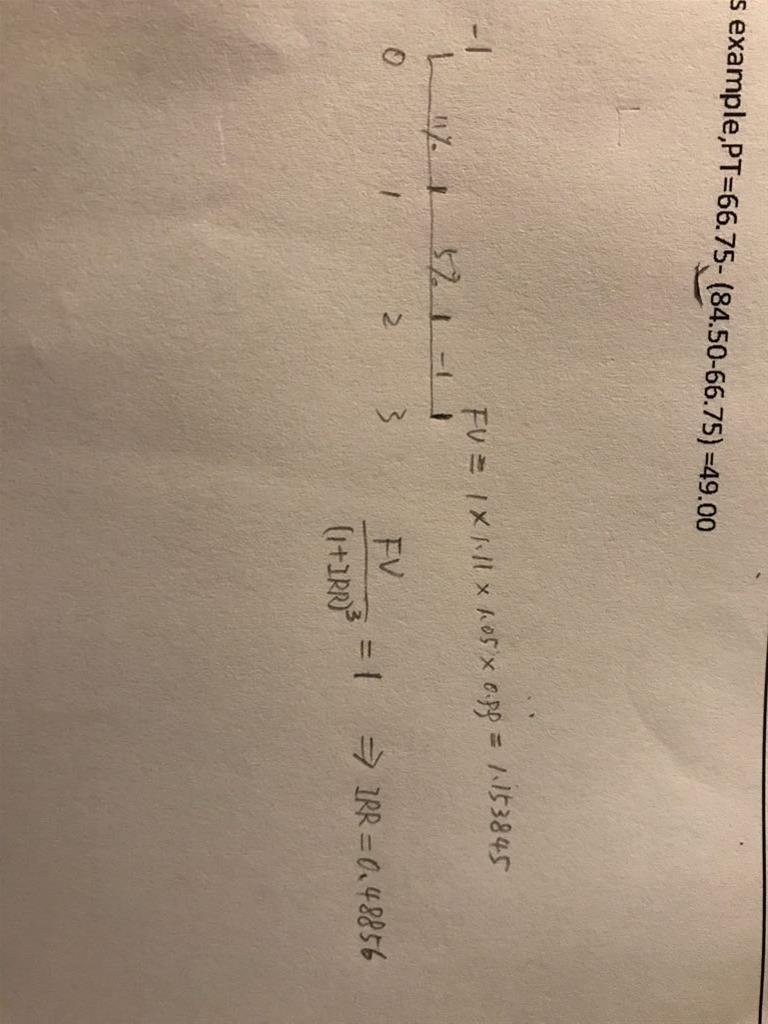 s example,PT=66.75- (84.50-66.75) =49.00
-1
11% 5% -1
0 1 2 3
FV = 1 × 1.11 × 1.05 × 0.99 = 1.153845
FV/(1+IRR)³ = 1 ⇒ IRR = 0.48856